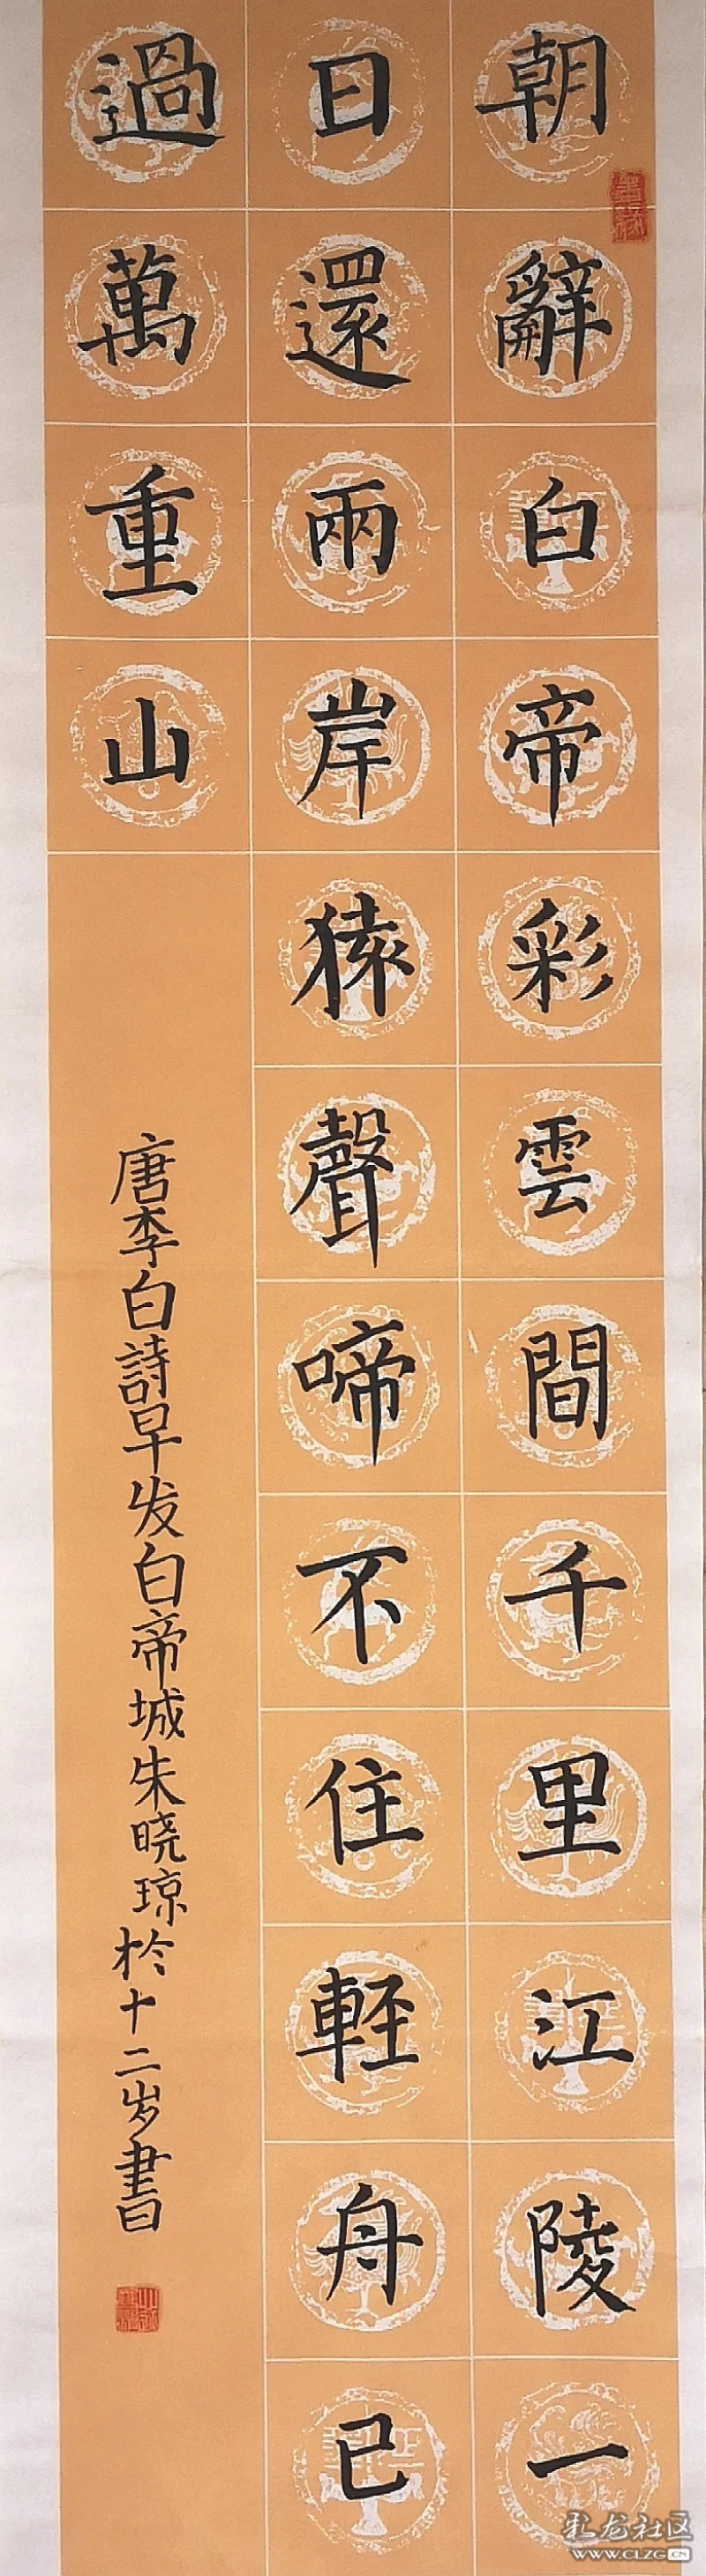 朝辭白帝彩雲間千里江陵一
日還兩岸猿聲啼不住輕舟已
過萬重山
唐李白詩早发白帝城朱晓琼於十二岁書
彩龙社区
WWW.CLZG.CN